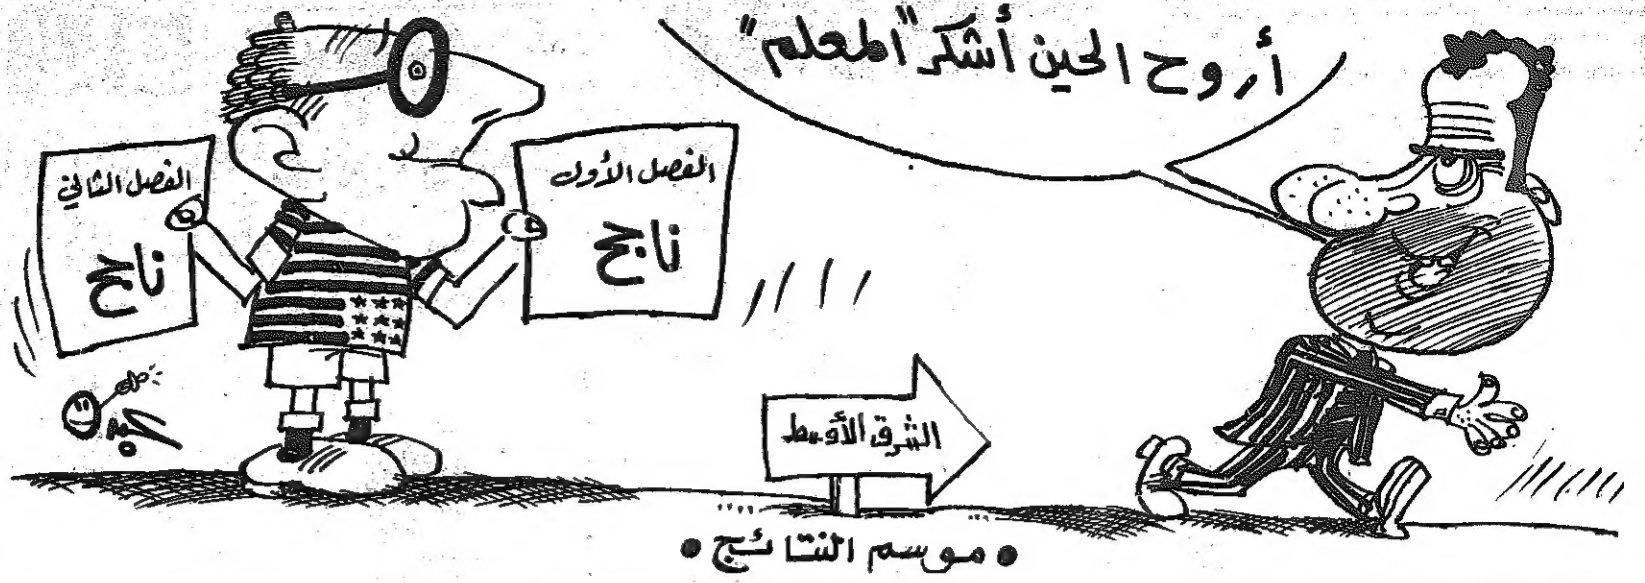 أروح الحين أشكر "المعلم"
الفصل الأول
ناجح
الفصل الثاني
ناجح
الشرق الأوسط
• موسم النتائج •